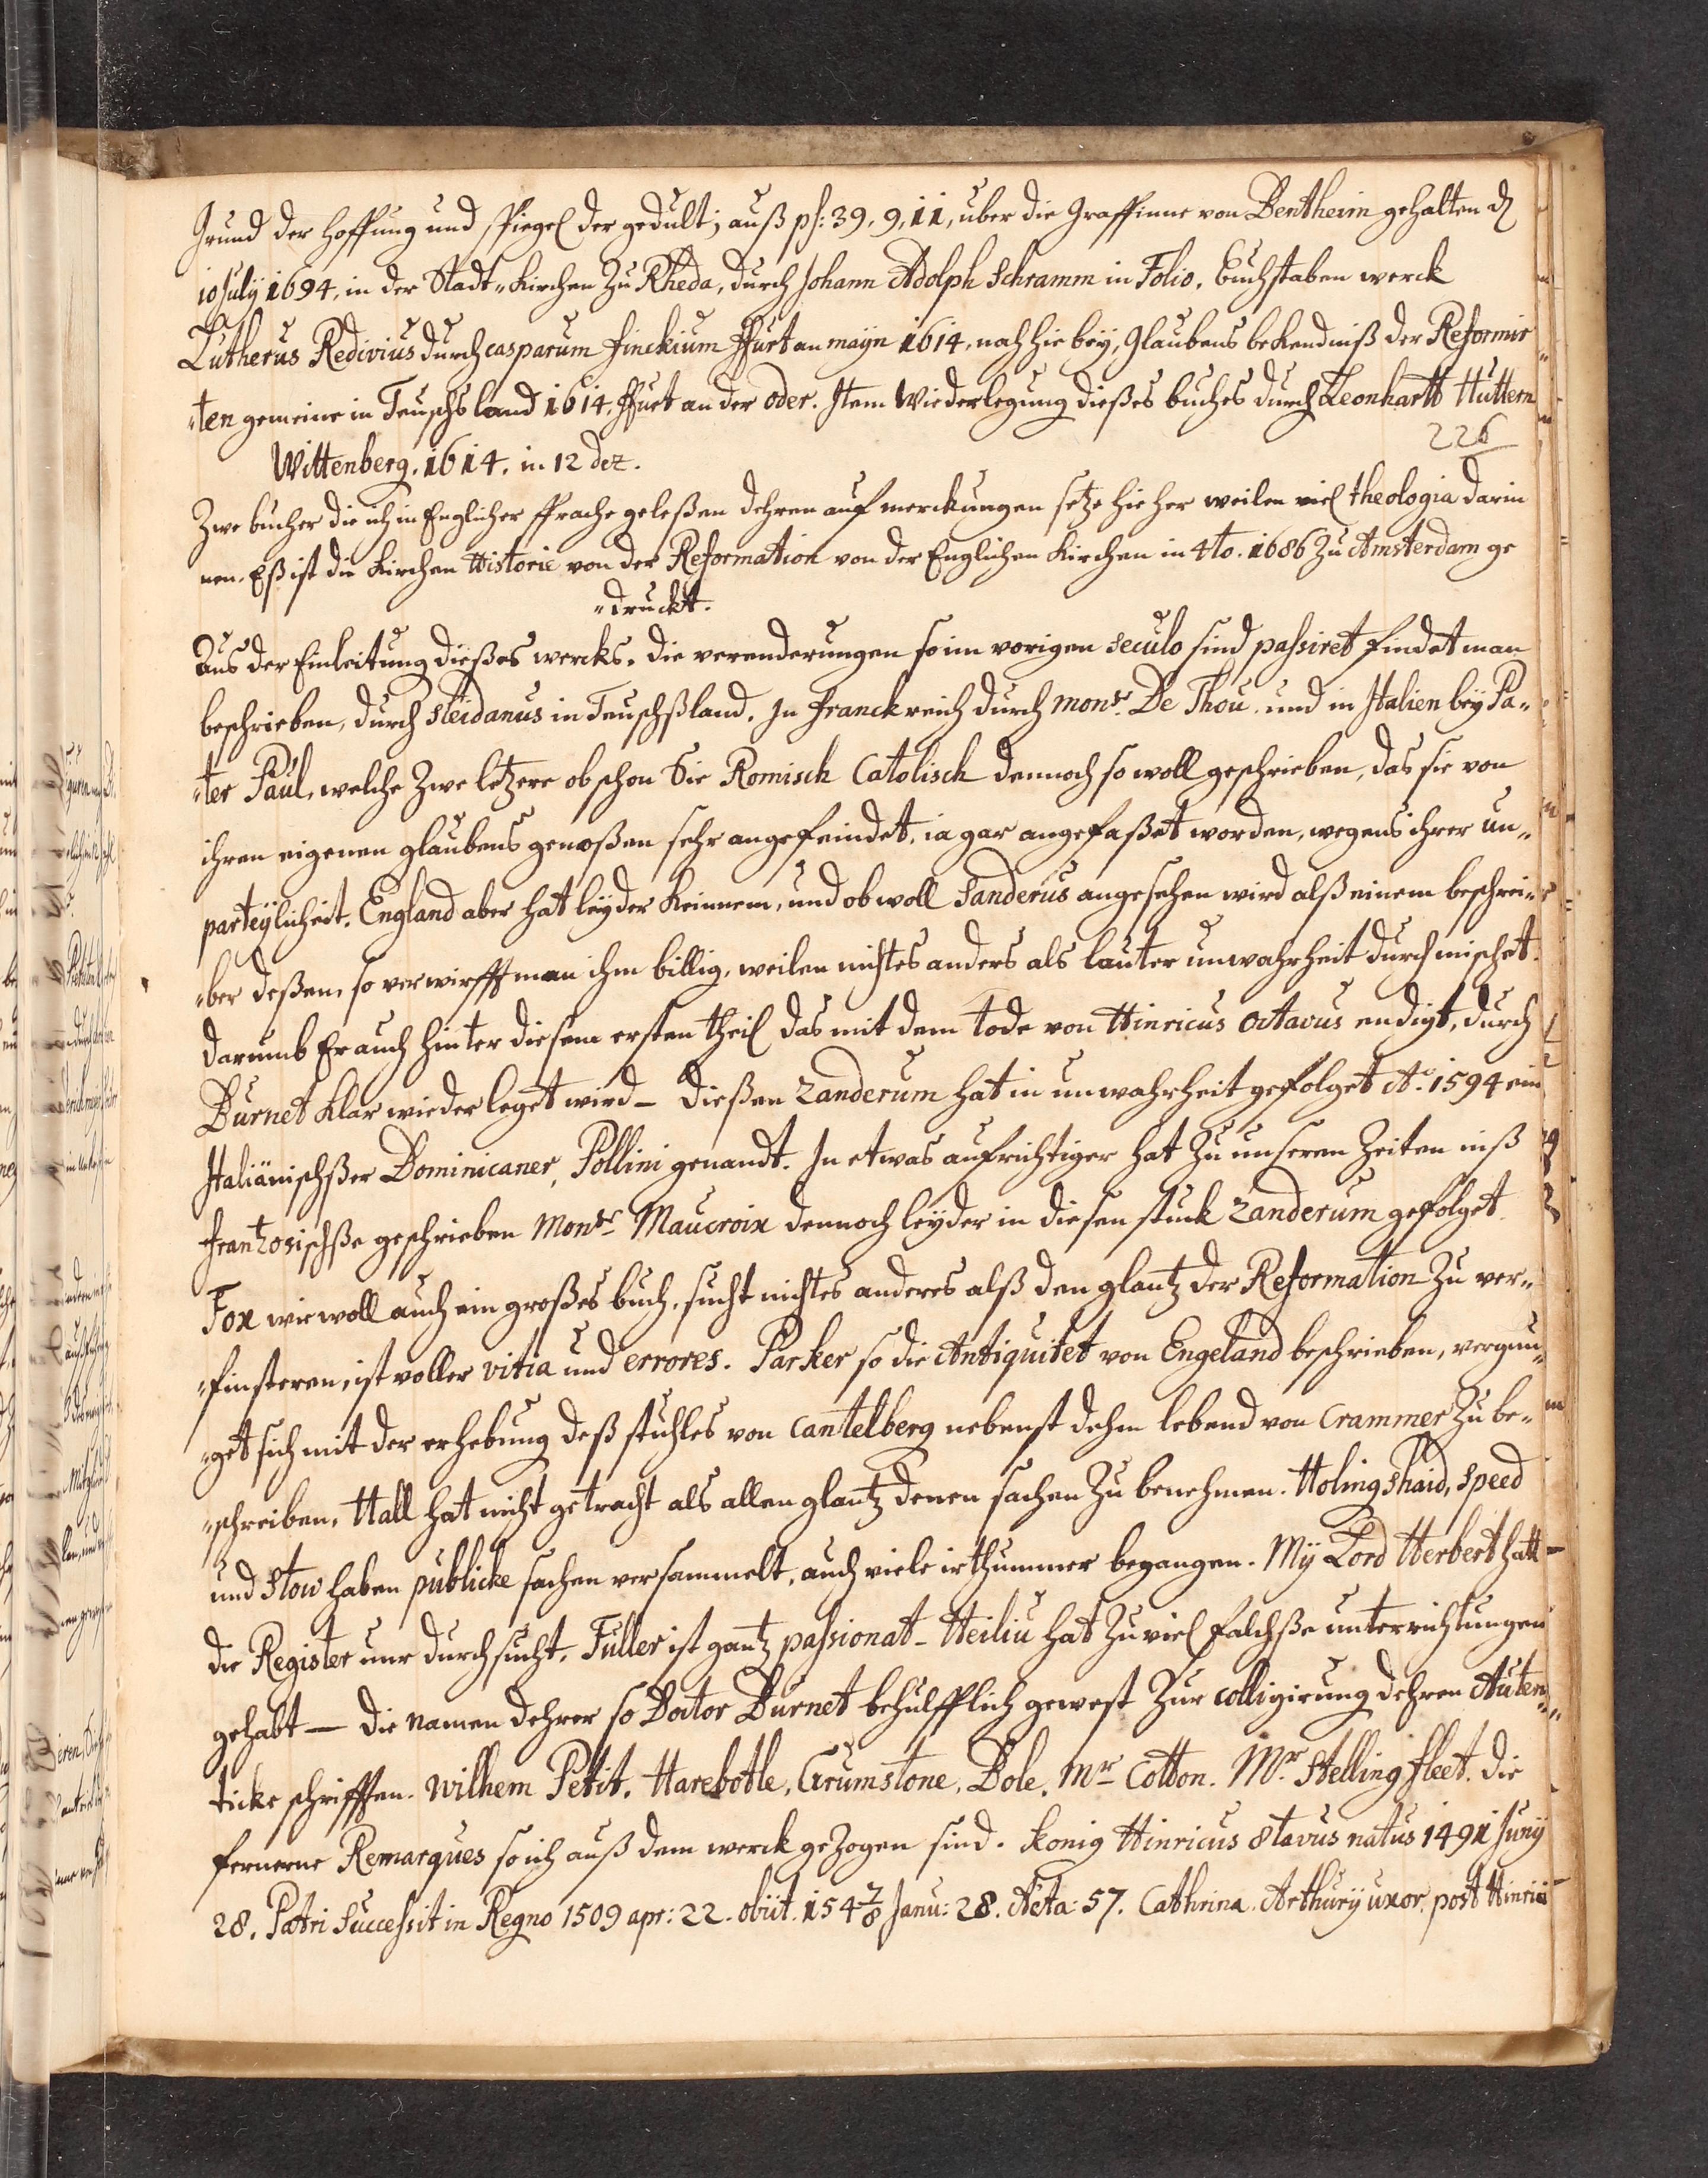 Grund der hoffung und spiegel der gedult; auß ps: 39, 9, 11, uber die Graffinne von Bentheim gehalten d
10 July 1694, in der Stadt„Kirchen zu Rheda, durch Johann Adolph Schramm in Folio. buchstaben werck
Lutherus Redivius durch casparum Finckium ffurt an mayn 1614, noch hie bey, Glaubens bekendniß der Reformir
„ten gemeine in Teuschsland 1614. ffurt an der oder. Item Wiederlegung dießes buches durch Leonhartt Huttern
226
Wittenberg. 1614. in 12 dez.
Zwe bucher die ich in Englicher sprache geleßen dehren auf merckungen setze hie her weilen viel theologia darin
nen. Eß ist die Kirchen Historie von der Reformation von der Englichen Kirchen in 4to. 1686 zu Amsterdam ge
„druckt.
Aus der Einleitung dießes wercks. Die verenderungen so im vorigen seculo sind passiret findet man
beschrieben, durch Sleidanus in Teuschßland. In Franckreich durch monsr. De Thou. und in Italien bey Pa„
„ter Paul, welche zwe letzere obschon Sie Romisch Catolisch dennoch so woll geschrieben, das sie von
ihren eigenen glaubens genoßen sehr angefeindet, ia gar angefaßet worden, wegens ihrer un„
parteylicheit. England aber hat leyder keinnem, und ob woll Sanderus angesehen wird alß einem beschrei„
„ber deßen, so verwirfft man ihm billig, weilen nichtes anders als lauter unwahrheit durch mischet.
darumb Er auch hinter diesem ersten theil das mit dem tode von Hinricus octavus endigt, durch
Burnet klar wiederleget wird – dießen Zanderum hat in unwahrheit gefolget Ao. 1594 ein
Italiänischßer Dominicaner, Pollini genandt. In etwas aufrichtiger hat zu unseren Zeiten inß
Frantzosischße geschrieben Monsr Maucroix dennoch leyder in diesen stuck Zanderum gefolget.
Fox wie woll auch ein großes buch, sucht nichtes anderes alß den glantz der Reformation zu ver„
„finsteren, ist voller vitia und errores. Parker so die Antiquitet von Engeland beschrieben, vergnu„
„get sich mit der erhebung deß stuhles von Cantelberg nebenst dehm lebend von Crammer zu be„
„schreiben. Hall hat nicht getracht als allen glantz denen sachen zu benehmen. Holingshaid, Speed
und Stow haben publicke sachen versammelt, auch viele irthummer begangen. My Lord Herbert hatt
die Register nur durchsucht. Fuller ist gantz passionat – Heiliu hat zu viel falchße unterrichtungen
gehabt – die namen dehrer so Doctor Burnet behulfflich gewest zur colligirung dehren Auten„
ticke schrifften. Wilhem Petit. Harebotle, Grumstone, Dole. Mr Cotton. Mr. Stellingfleet. die
fernerne Remarques so ich auß dem werck gezogen sind. Konig Hinricus 8tavus natus 1491 Juny
28. Patri Successit in Regno 1509 apr: 22. obiit. 154 7/8 Janu: 28. Aeta: 57. Cathrina. Arthury uxor. post Hinrici